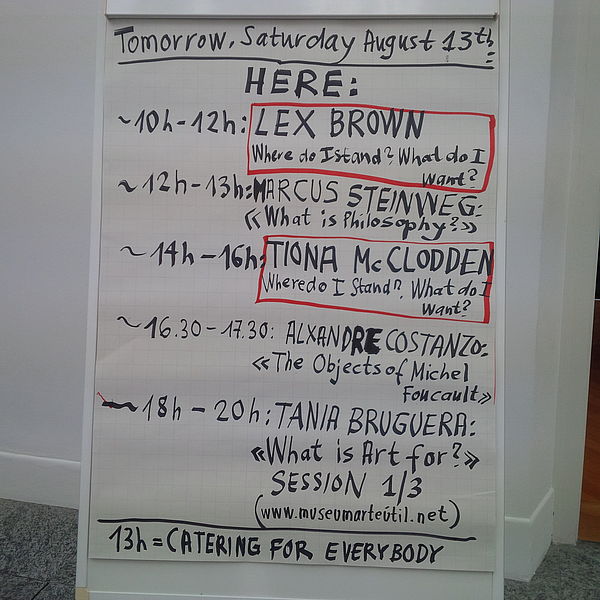 Tomorrow, Saturday August 13th
HERE:
~10h-12h: LEX BROWN
Where do I stand? What do I
Want?
~12h-13h: MARCUS STEINWEG:
«What is Philosophy?»
~14h-16h: TIONA McCLODDEN
Where do I Stand?, What do I
Want?
~16.30-17.30: ALXANDRE COSTANZO:
«The Objects of Michel
Foucault»
~18h-20h: TANIA BRUGUERA:
«What is Art for?»
SESSION 1/3
(www.museumarteútil.net)
13h = CATERING FOR EVERYBODY